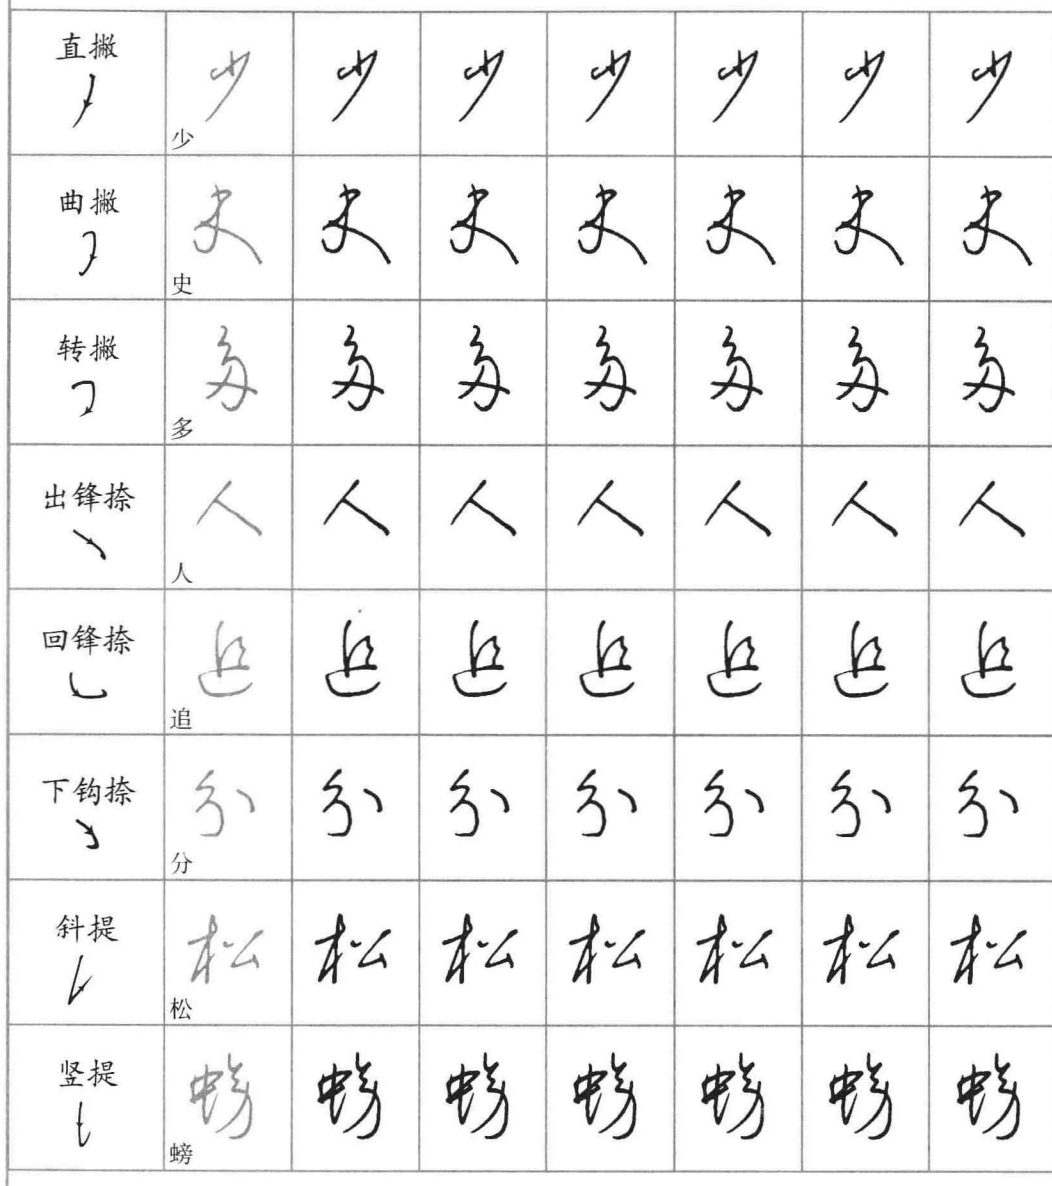 直撇 少 少 少 少 少 少 少
少
曲撇 史 史 史 史 史 史 史
史
转撇 多 多 多 多 多 多 多
多
出锋捺 人 人 人 人 人 人 人
人
回锋捺 追 追 追 追 追 追 追
追
下钩捺 分 分 分 分 分 分 分
分
斜提 松 松 松 松 松 松 松
松
竖提 螃 螃 螃 螃 螃 螃 螃
螃